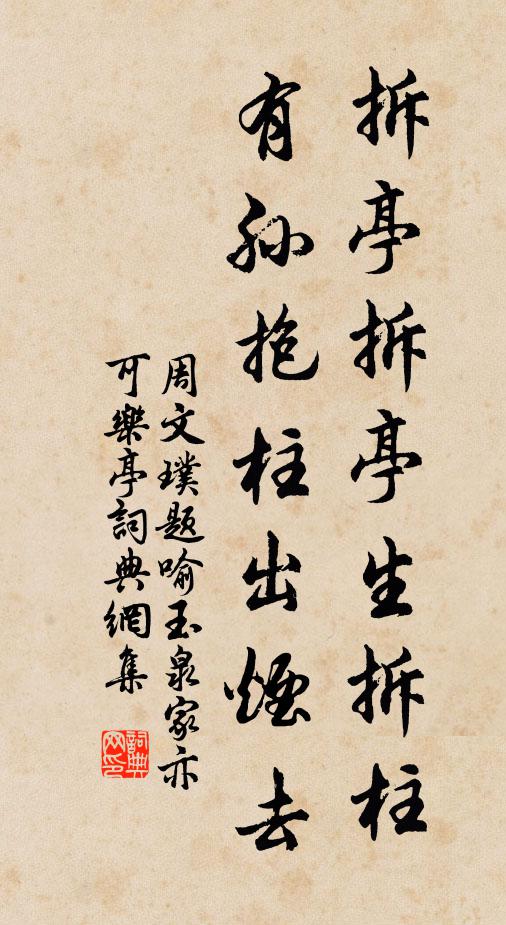 拆亭拆亭生拆柱
有孙抱柱出烟去
周文璞题喻玉泉家亦
可樂亭詞典網集
詞典网印